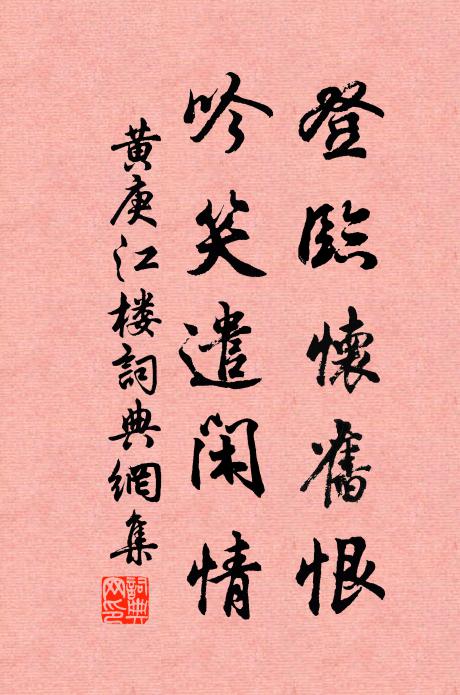 登臨懷舊恨
吟笑遣閑情
黄庚江楼詞典網集
詞典网印